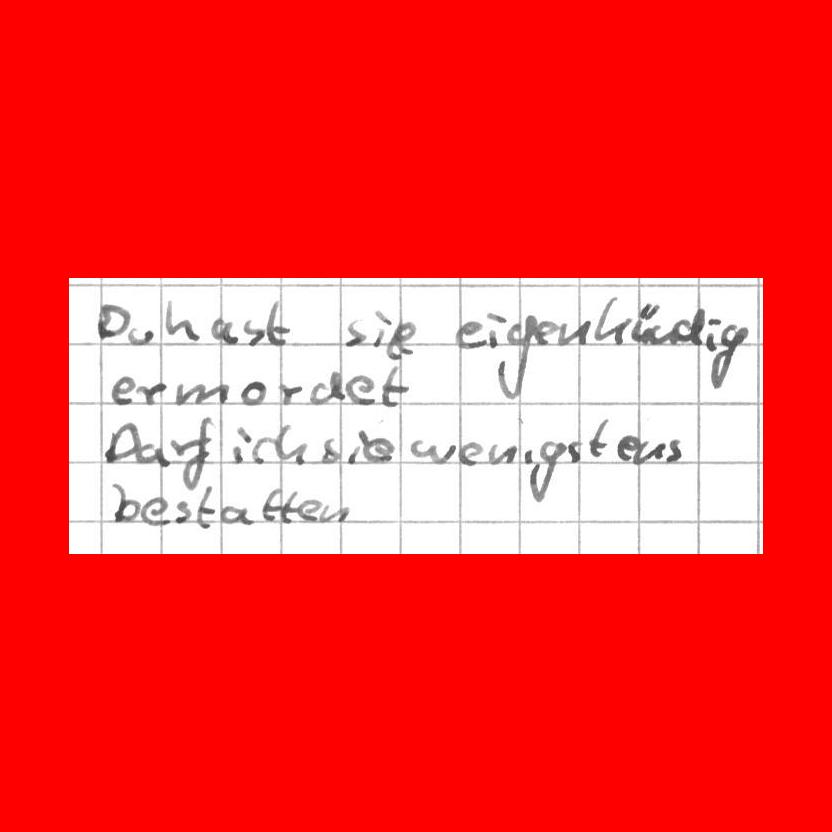 Du hast sie eigenhändig
ermordet
Darf ich sie wenigstens
bestatten